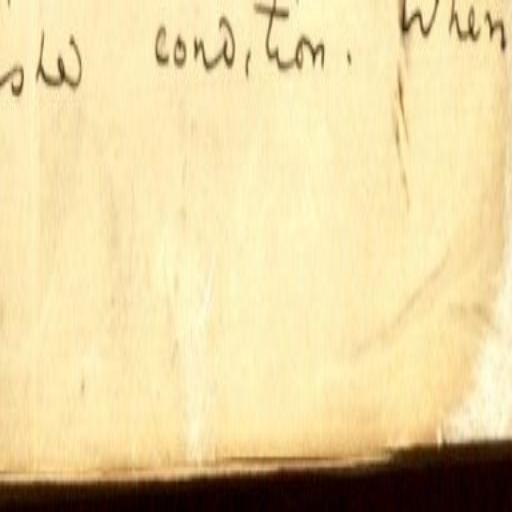 condition. When